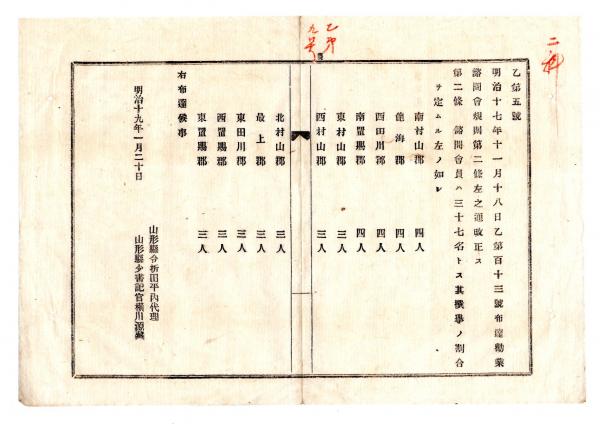 乙第五號
明治十七年十一月十八日乙第百十三號布達勸業
諮問會規則第二條左之通改正ス
第二條 諮問會員ハ三十七名トス其撰擧ノ割合
ヲ定ムル左ノ如シ
南村山郡 四人
飽海郡 四人
西田川郡 四人
南置賜郡 四人
東村山郡 三人
西村山郡 三人
北村山郡 三人
最上郡 三人
東田川郡 三人
西置賜郡 三人
東置賜郡 三人
右布達候事
明治十九年一月二十日
山形縣令折田平內代理
山形縣少書記官